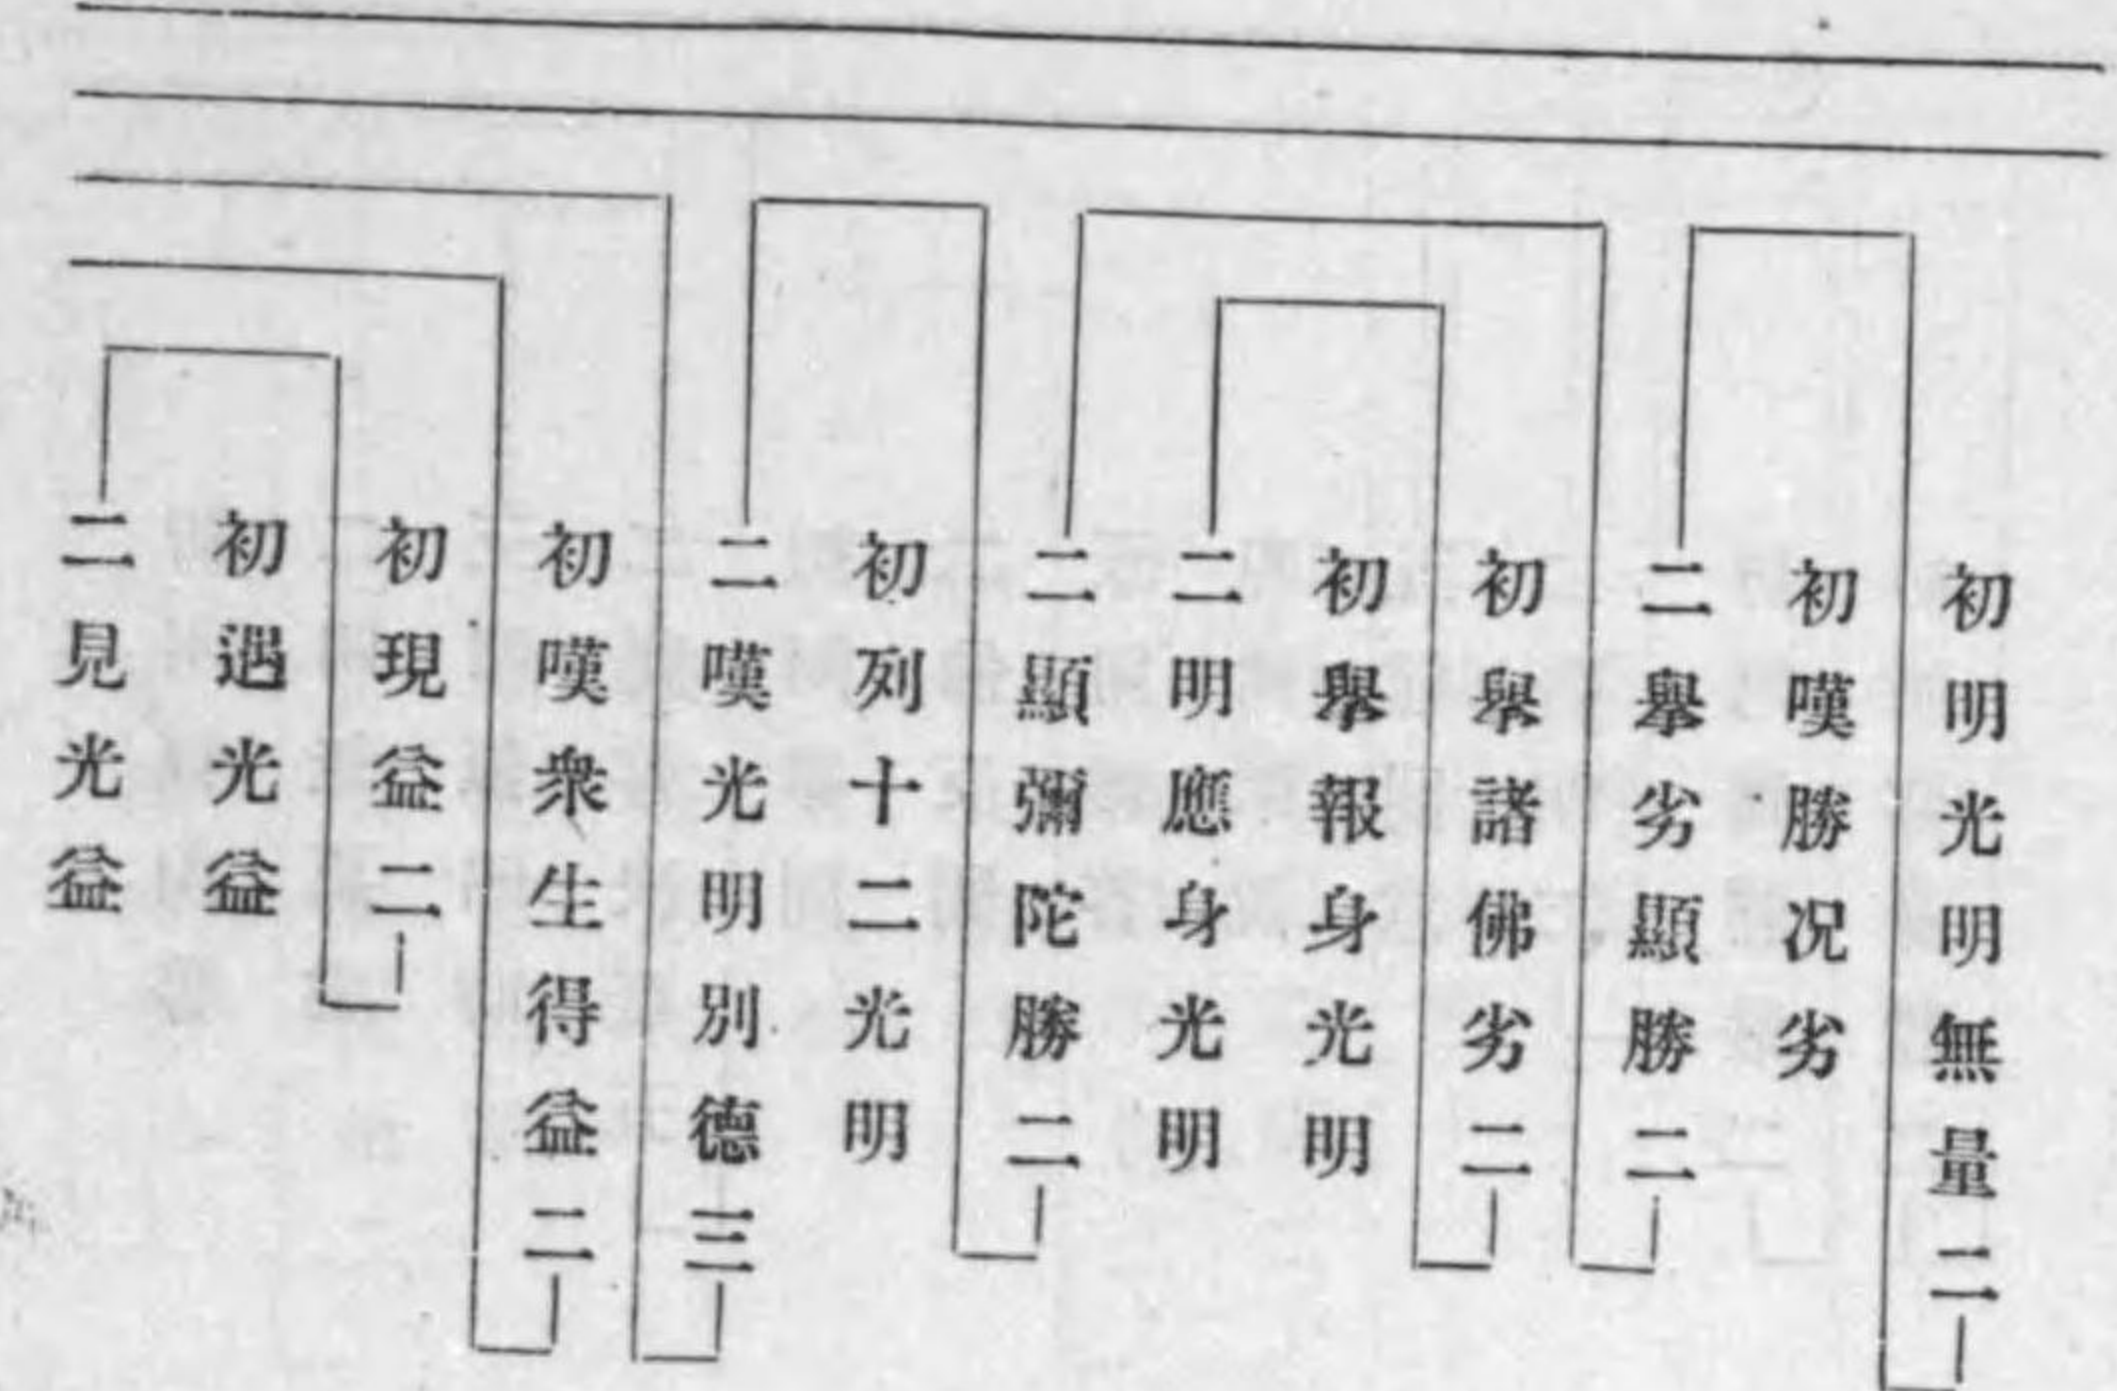 初明光明無量二
初嘆勝况劣
二擧劣顯勝二
初擧諸佛劣二
初擧報身光明
二明應身光明
二顯彌陀勝二
初列十二光明
二嘆光明別德三
初嘆衆生得益二
初現益二
初遇光益
二見光益